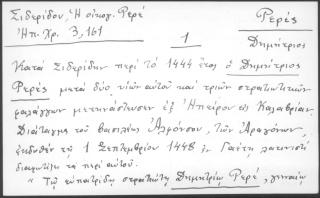 Σιδερίδου, Ἡ οἰκογ. Ρερέ
Ἠπ. Χρ. 3, 161
Ρερές
Δημήτριος
1
Κατά Σιδερίδην περί τό 1444 ἔτος ὁ Δημήτριος
Ρερές μετά δύο υἱῶν αὐτοῦ καί τριῶν στρατιωτικῶν
φαλάγγων μετηνάστευσεν ἐξ Ἠπείρου εἰς Καλαβρίαν.
Διάταγμα τοῦ βασιλέως Ἀλφόνσου, τῶν Ἀραγόνων,
ἐκδοθέν τῇ 1 Σεπτεμβρίου 1448 ἐν Γαέτῃ, λατινιστί
διαφωτίζει τά περί αὐτοῦ.
" Τῷ εὐπατρίδῃ στρατιώτῃ Δημητρίῳ Ρερέ, γενναίῳ